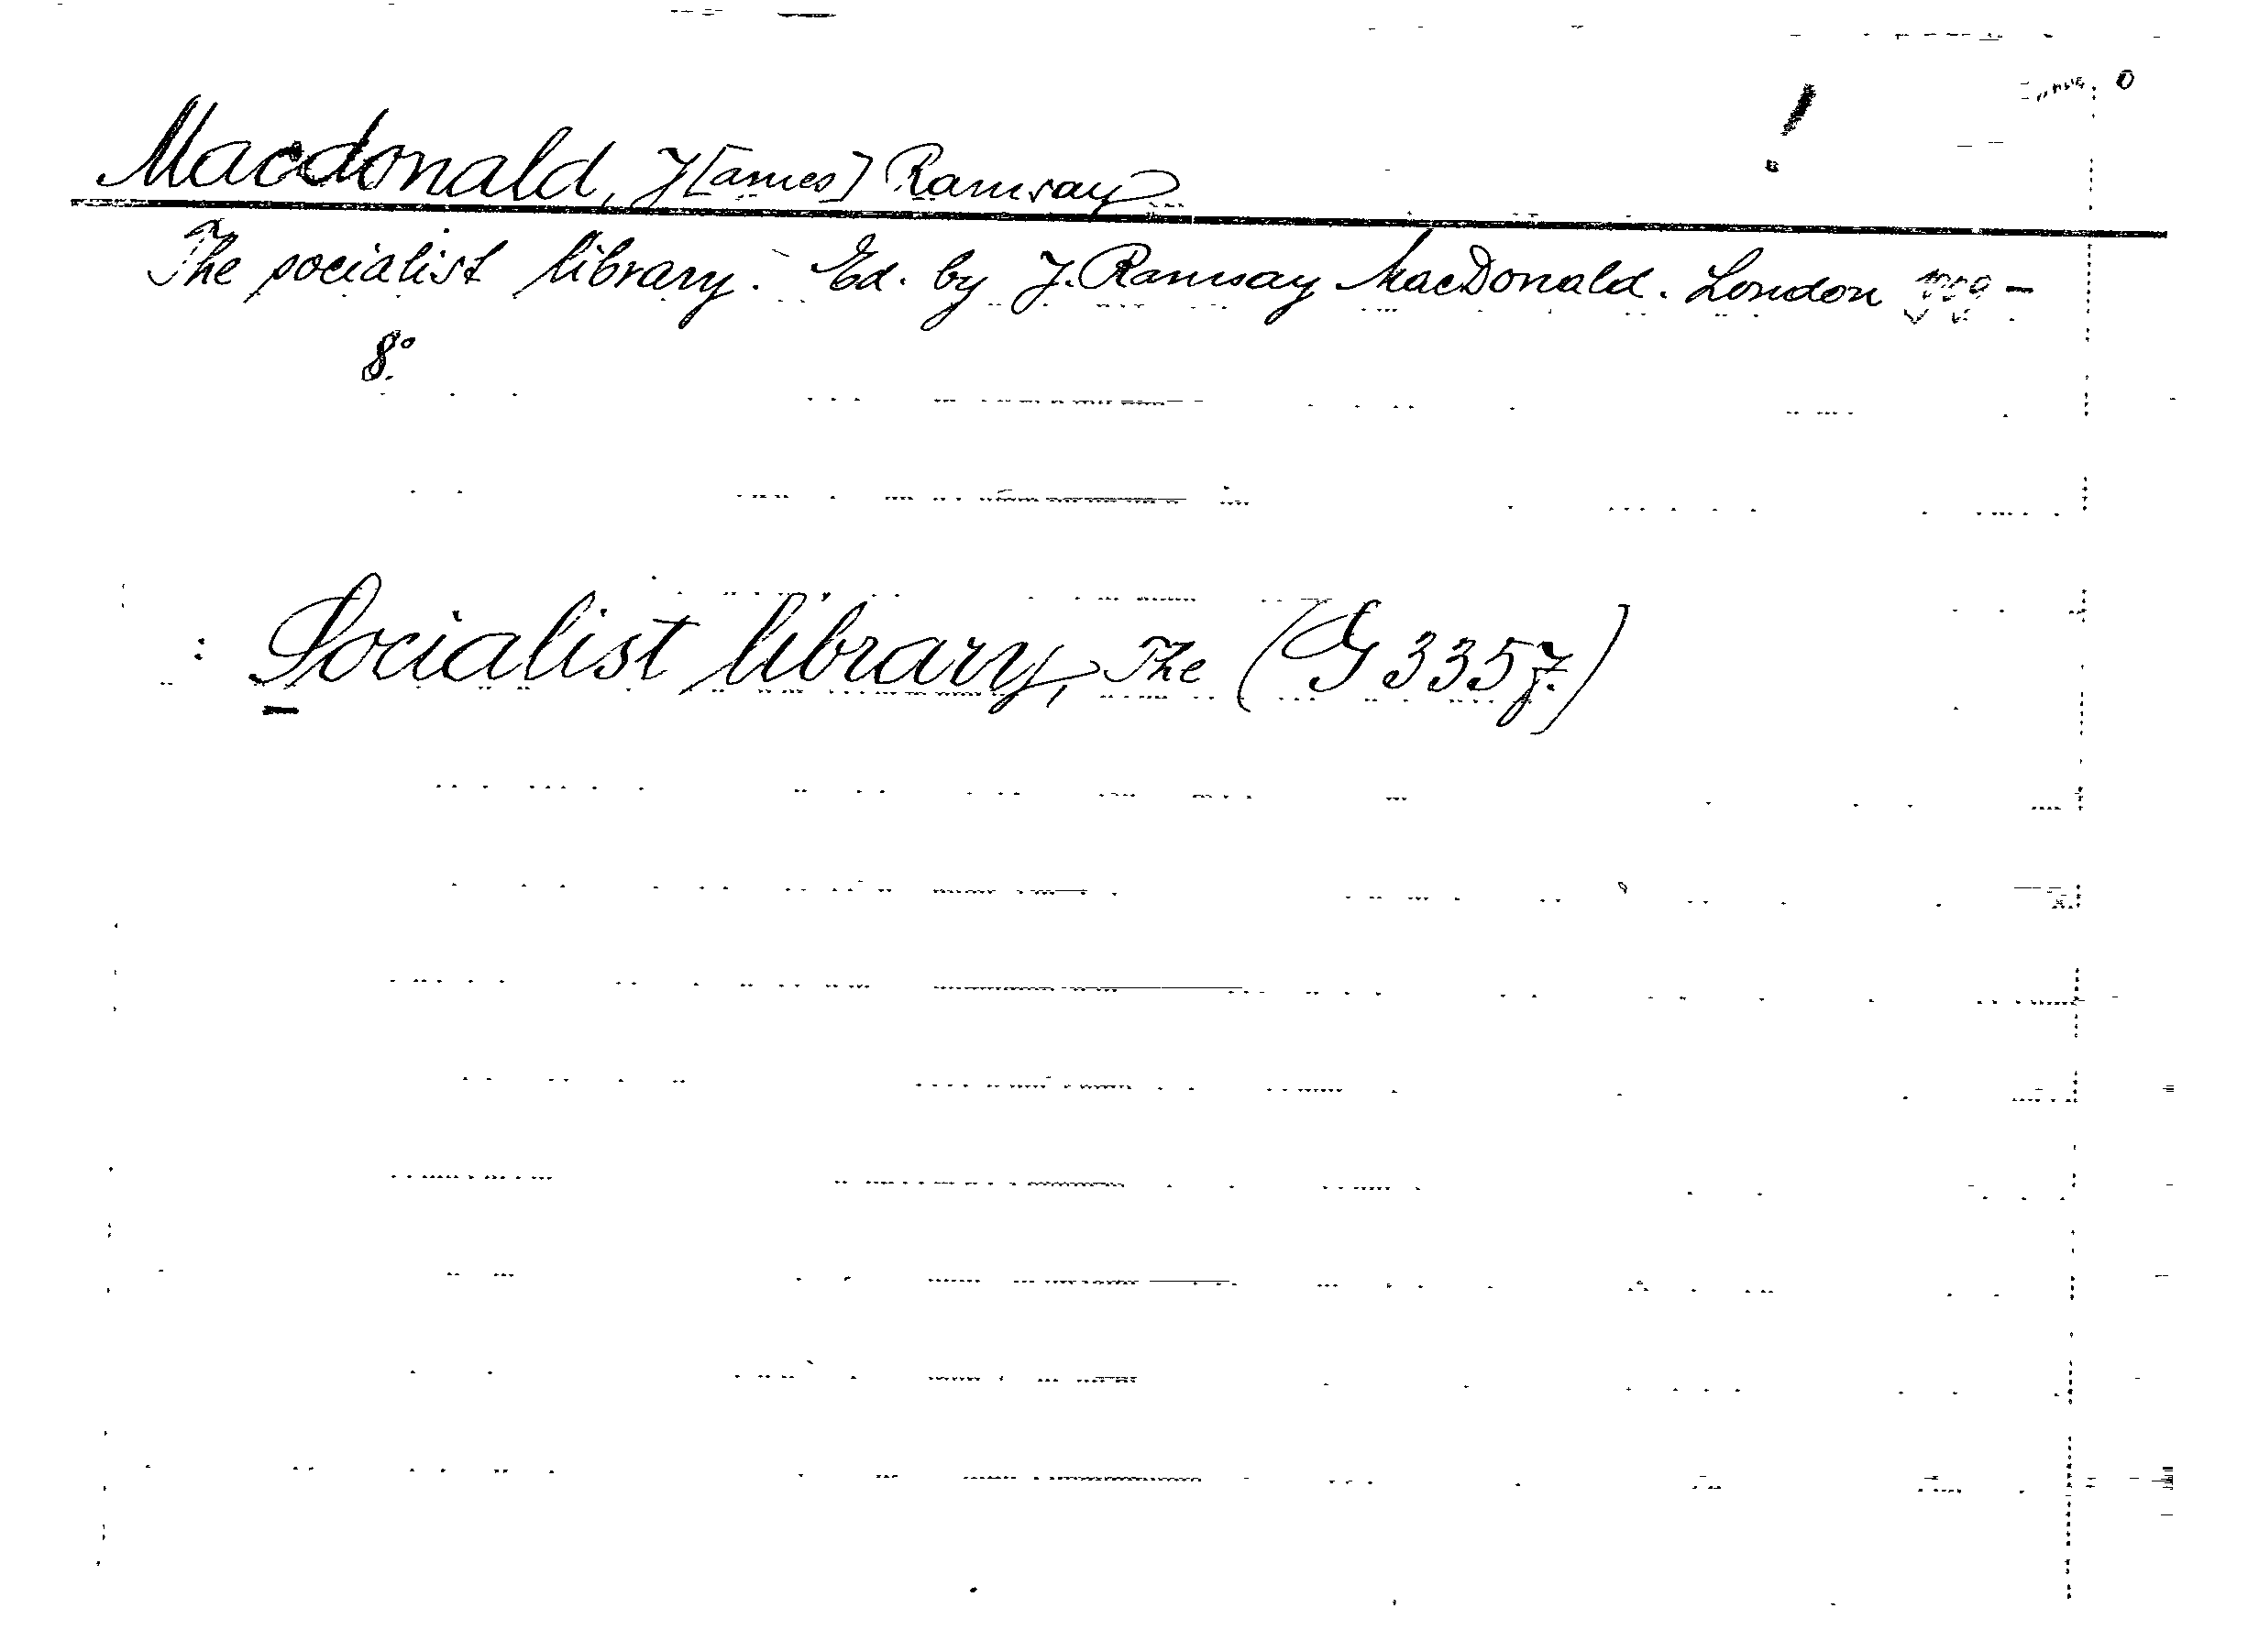 !
Macdonald, J[ames] Ramsay
The socialist library. Ed. by J. Ramsay MacDonald. London
8°.
: Socialist library, The (G 3357.)